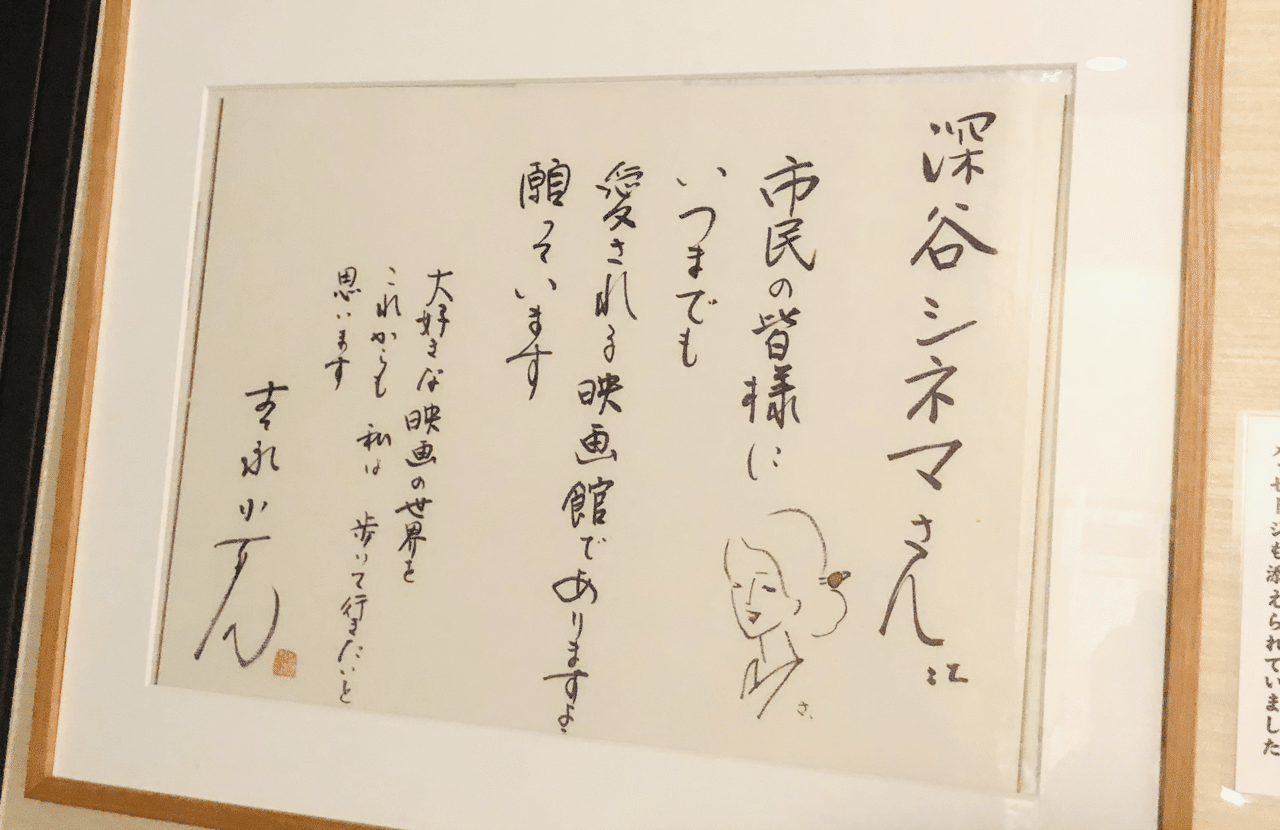 深谷シネマさん江
市民の皆様に
いつまでも
愛される映画館でありますよう
願っています
大好きな映画の世界を
これからも 私は 歩いて行きたいと
思います
吉永小百合
さ
メッセージも添えられていました